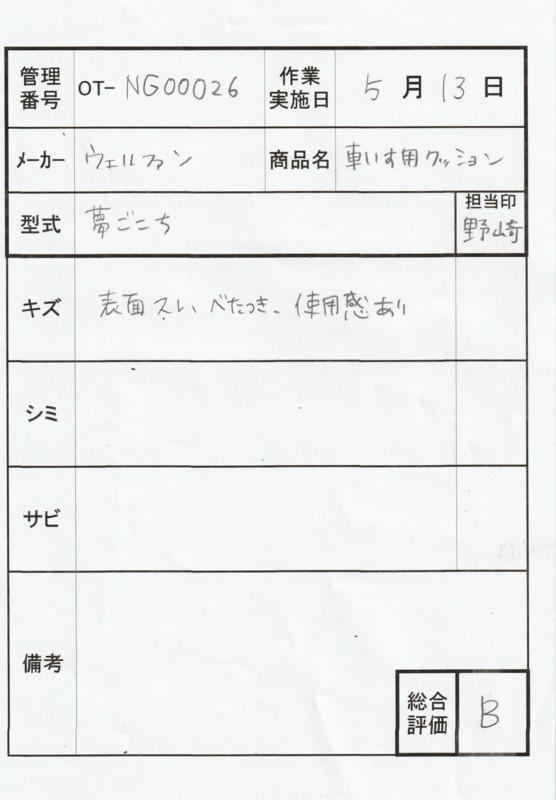 管理番号 OT- NG00026 作業実施日 5月13日
メーカー ウェルファン 商品名 車いす用クッション
型式 夢ごこち 担当印 野崎
キズ 表面スレ、べたつき、使用感あり
シミ
サビ
備考
総合評価 B